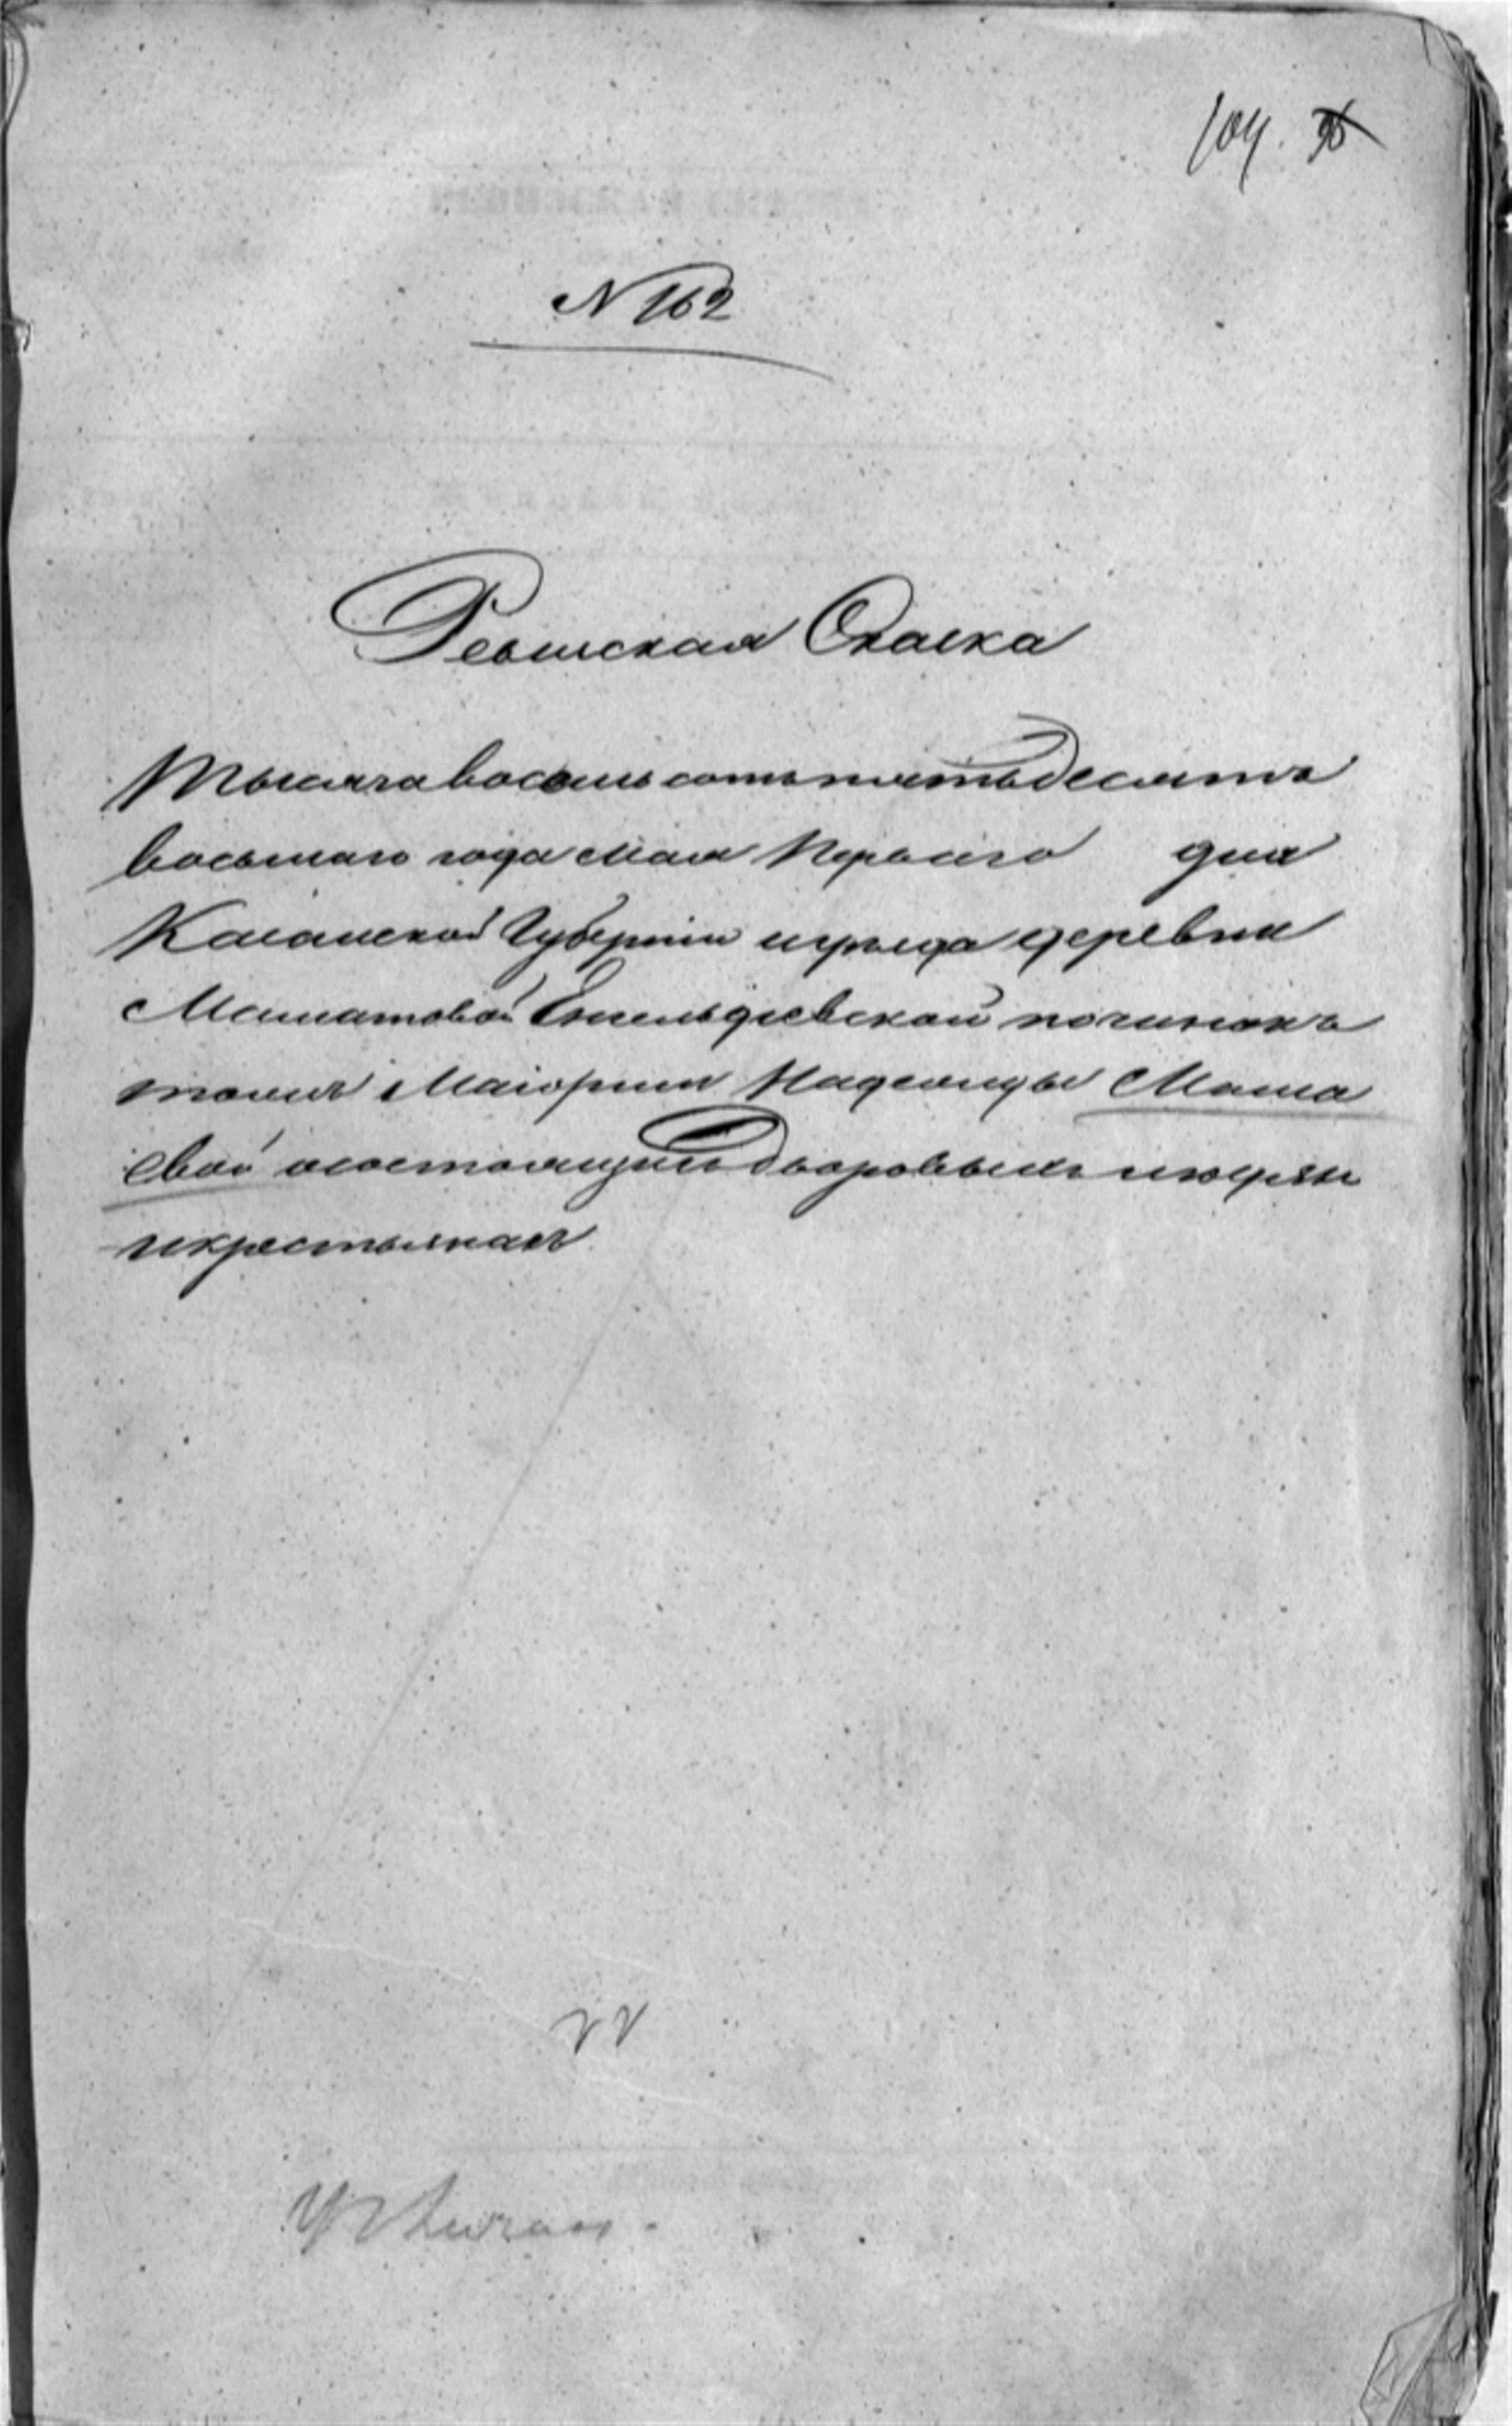 104. 96
N 162
Ревизская Сказка
Тысяча восемь сотъ пятьдесятъ
восьмаго года Мая Перваго дня
Казанской Губерніи и уѣзда деревни
Маматовой Емельдѣевской починокъ
тожъ Маіорши Надежды Мама
евой о состоящихъ дворовыхъ людяхъ
и крестьянахъ